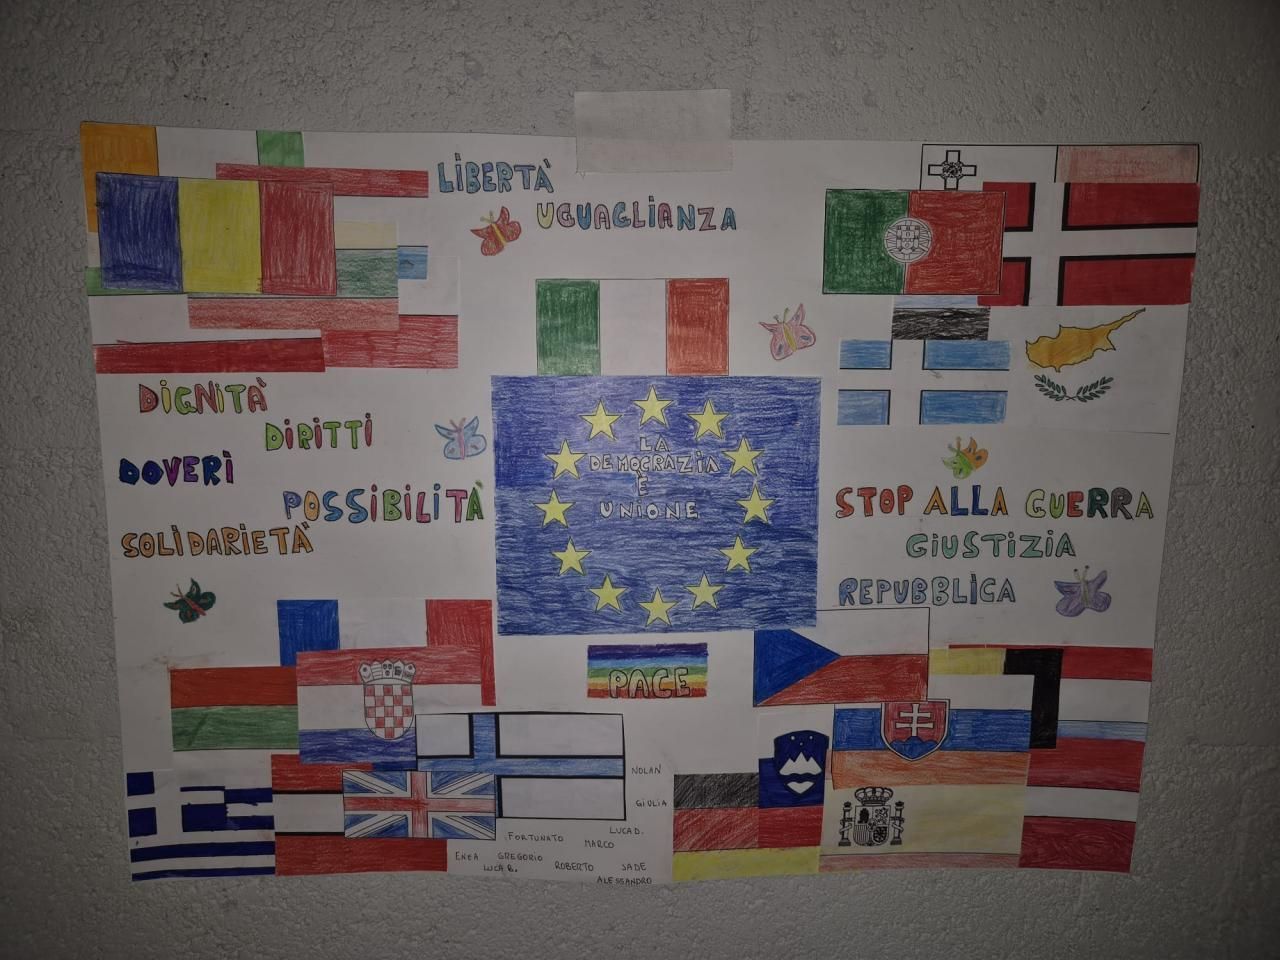 LIBERTÀ
UGUAGLIANZA
DIGNITÀ
DIRITTI
DOVERI
POSSIBILITÀ
SOLIDARIETÀ
LA
DEMOCRAZIA
È
UNIONE
STOP ALLA GUERRA
GIUSTIZIA
REPUBBLICA
PACE
NOLAN
GIULIA
LUCA D.
FORTUNATO
MARCO
ENEA GREGORIO
LUCA B.
ROBERTO SADE
ALESSANDRO